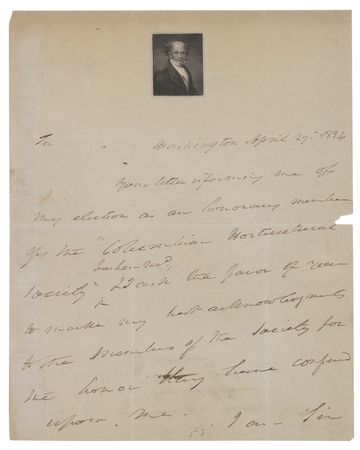 Washington April 29. 1834
Your letter informing me off
my election as an honorary member
of the "Columbian Horticultural
Society" I ask the favor of you
to make my best acknowledgments
to the Members of the Society for
the honor they have conferred
upon me. I am - Sir
53